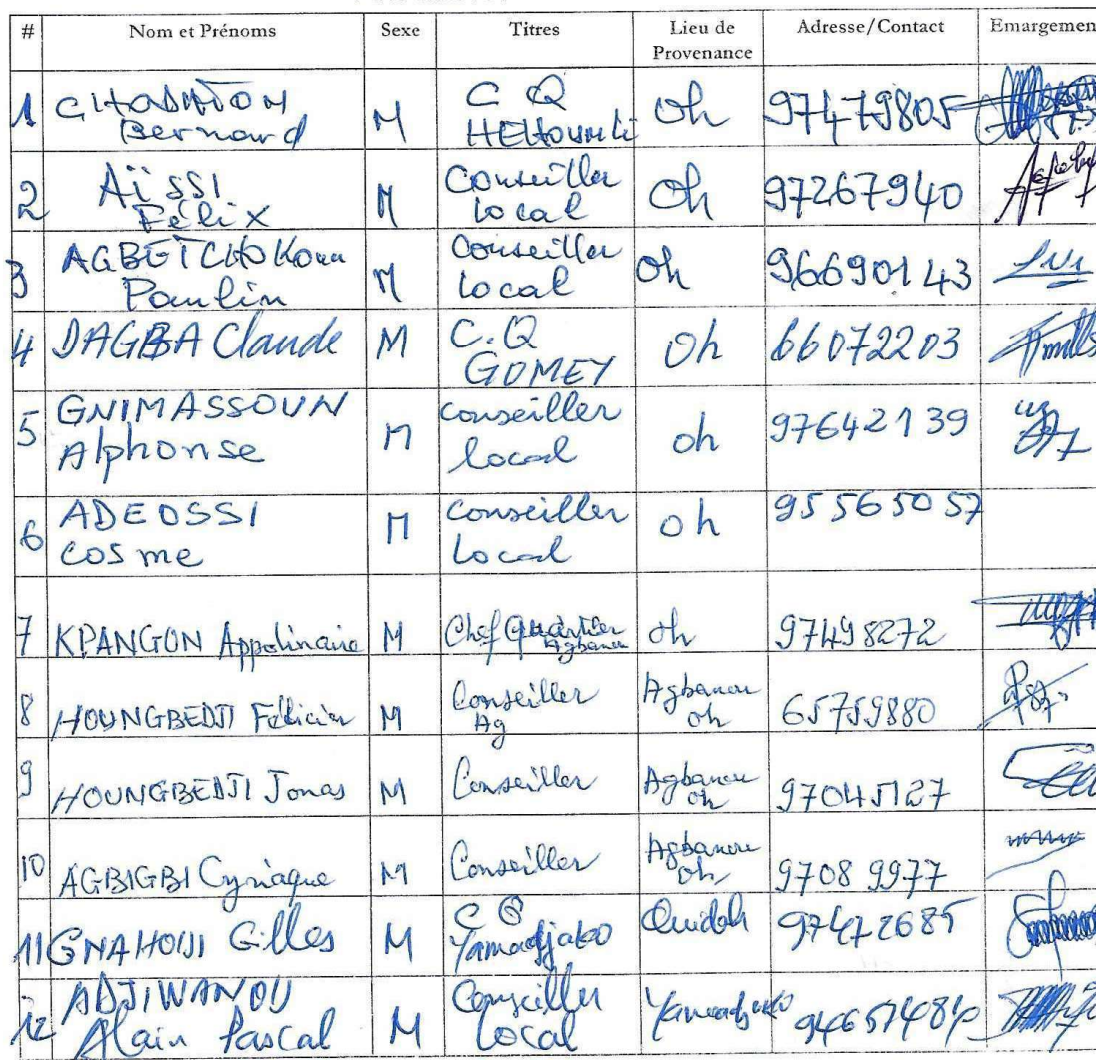 # Nom et Prénoms Sexe Titres Lieu de Provenance Adresse/Contact Emargement
1 Bernard M C Q Oh 97479805
2 Aïssi Félix M Conseiller local Oh 97267940
3 Paulin M Conseiller local Oh 96690143
4 DAGBA Claude M C.Q GOMEY Oh 66072203
5 GNIMASSOUN Alphonse M conseiller local oh 97642139
6 ADEOSSI cosme M conseiller local oh 95565057
7 KPANGON Appolinaire M Chef Quartier oh 97498272
8 HOUNGBEDJI Félicien M Conseiller Ag Agbanou oh 65759880
9 HOUNGBEDJI Jonas M Conseiller Agbanou oh 97045127
10 AGBIGBI Cyriaque M Conseiller Agbanou oh 97089977
11 GNAHOUI Gilles M C Q Yamadjako Ouidah 97472685
12 ADJIWANOU Alain Pascal M Conseiller Local